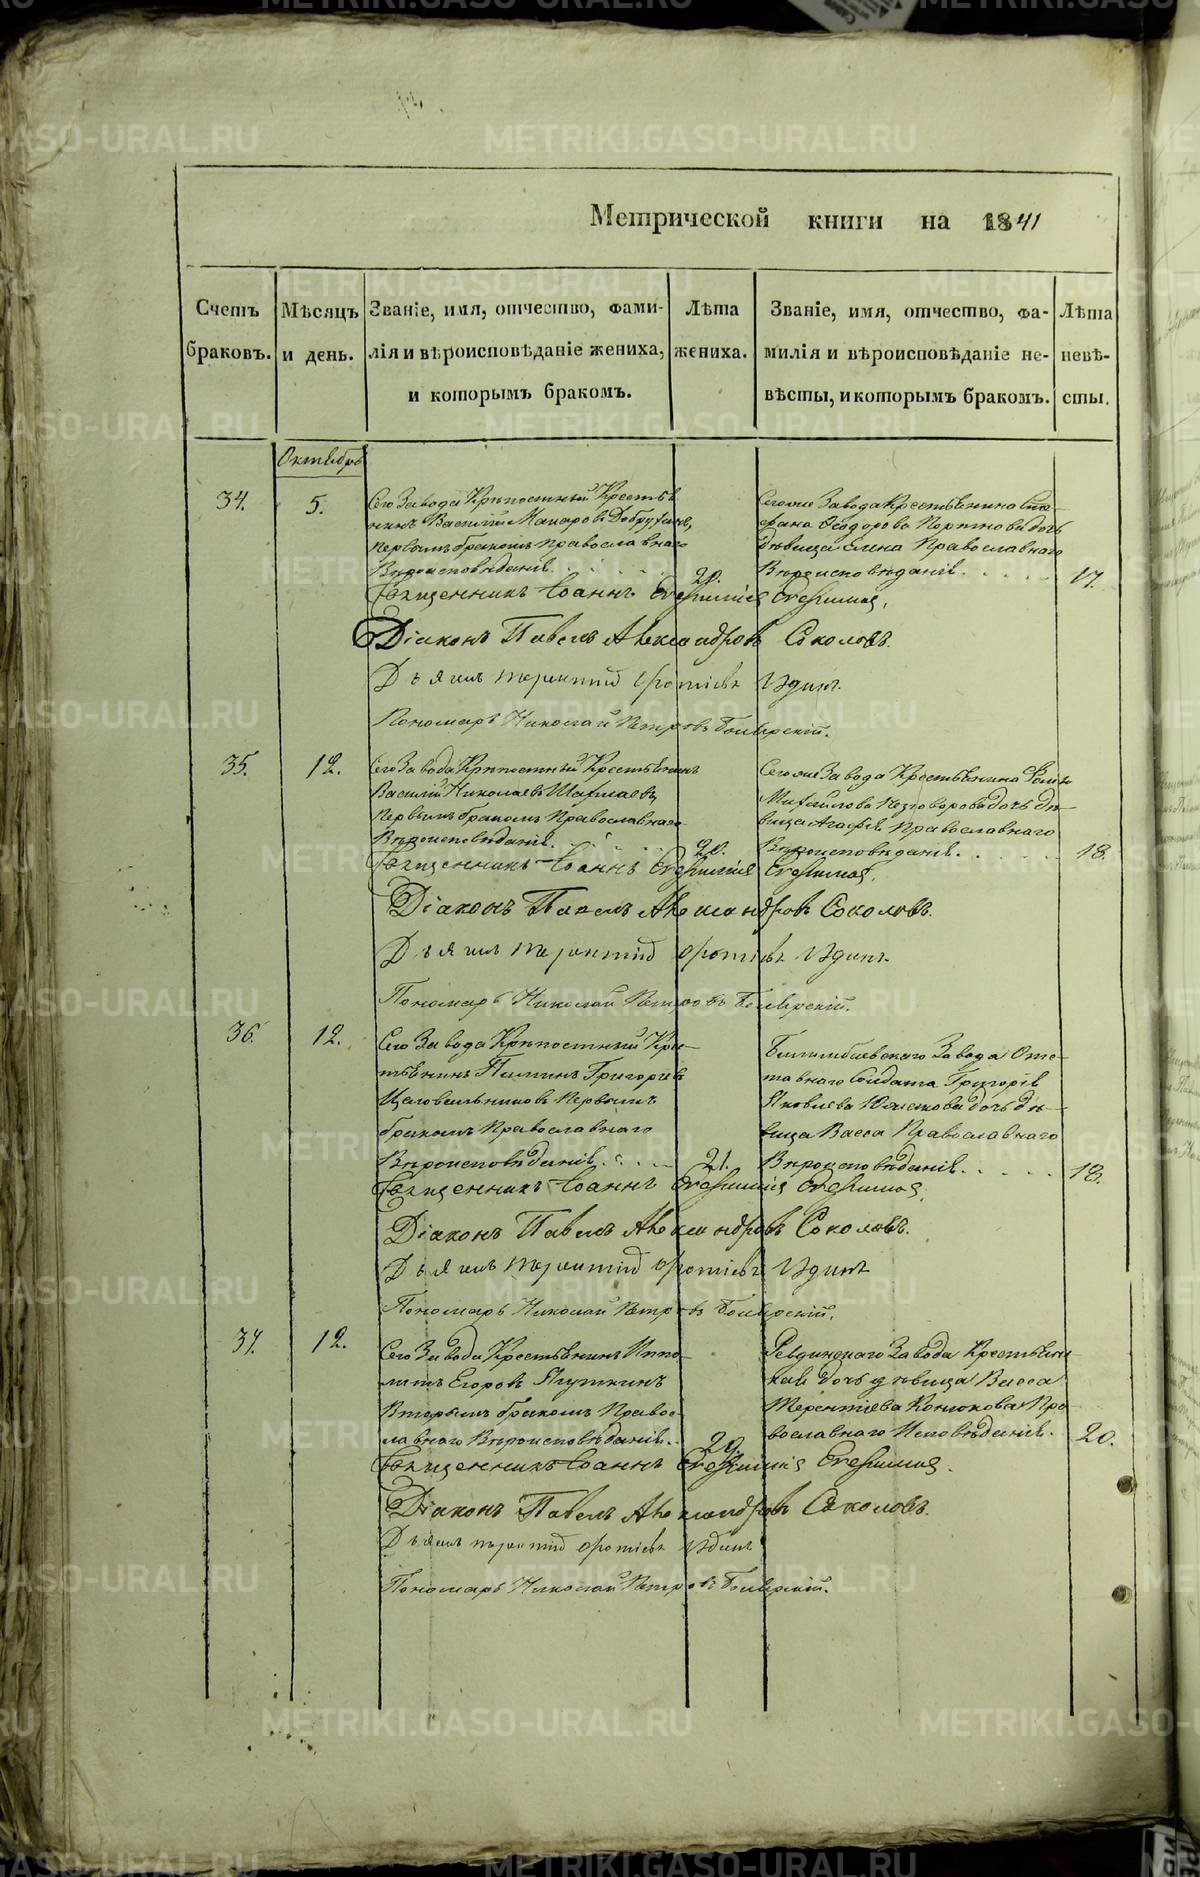 Метрической книги на 1841
Счетъ браковъ.
Мѣсяцъ и день.
Званіе, имя, отчество, фами-
лія и вѣроисповѣданіе жениха,
и которымъ бракомъ.
Лѣта
жениха.
Званіе, имя, отчество, фа-
милія и вѣроисповѣданіе не-
вѣсты, и которымъ бракомъ.
Лѣта
невѣ-
сты.
Октябрь
34.
5.
Сего Завода Крѣпостный Крестья
нинъ Василій Макаровъ
первымъ бракомъ православнаго
Вѣроисповѣданія.
20.
Сегоже Завода Крестьянина Сте-
фана Ѳеодорова Портнова дочь
дѣвица Елена Православнаго
Вѣроисповѣданія.
17.
Священникъ Іоаннъ
Діаконъ Павелъ Александровъ Соколовъ.
Дьячек Терентій
Пономарь Николай Петровъ
35.
12.
Сего Завода Крѣпостный Крестьянинъ
Василій Николаевъ
первымъ бракомъ Православнаго
Вѣроисповѣданія.
20.
Сегоже Завода Крестьянина
Михайлова дочь дѣ-
вица Агафія Православнаго
Вѣроисповѣданія.
18.
Священникъ Іоаннъ
Діаконъ Павелъ Александровъ Соколовъ.
Дьячек Терентій
Пономарь Николай Петровъ
36.
12.
Сего Завода Крѣпостный Кре-
стьянинъ Пименъ Григорьевъ
Целовальниковъ Первымъ
бракомъ Православнаго
Вѣроисповѣданія.
21.
Билимбаевскаго Завода Отс-
тавнаго Солдата Григорія
Яковлева дочь дѣ-
вица Васса Православнаго
Вѣроисповѣданія.
18.
Священникъ Іоаннъ
Діаконъ Павелъ Александровъ Соколовъ.
Дьячек Терентій
Пономарь Николай Петровъ
37.
12.
Сего Завода Крестьянинъ Иппо-
литъ Егоровъ Ягушкинъ
Вторымъ бракомъ Право-
славнаго Вѣроисповѣданія.
29.
Ревдинскаго Завода
дочь дѣвица Васса
Терентіева Конюхова Пра
вославнаго Исповѣданія.
20.
Священникъ Іоаннъ
Діаконъ Павелъ Александровъ Соколовъ.
Дьячек Терентій
Пономарь Николай Петровъ
METRIKI.GASO-URAL.RU